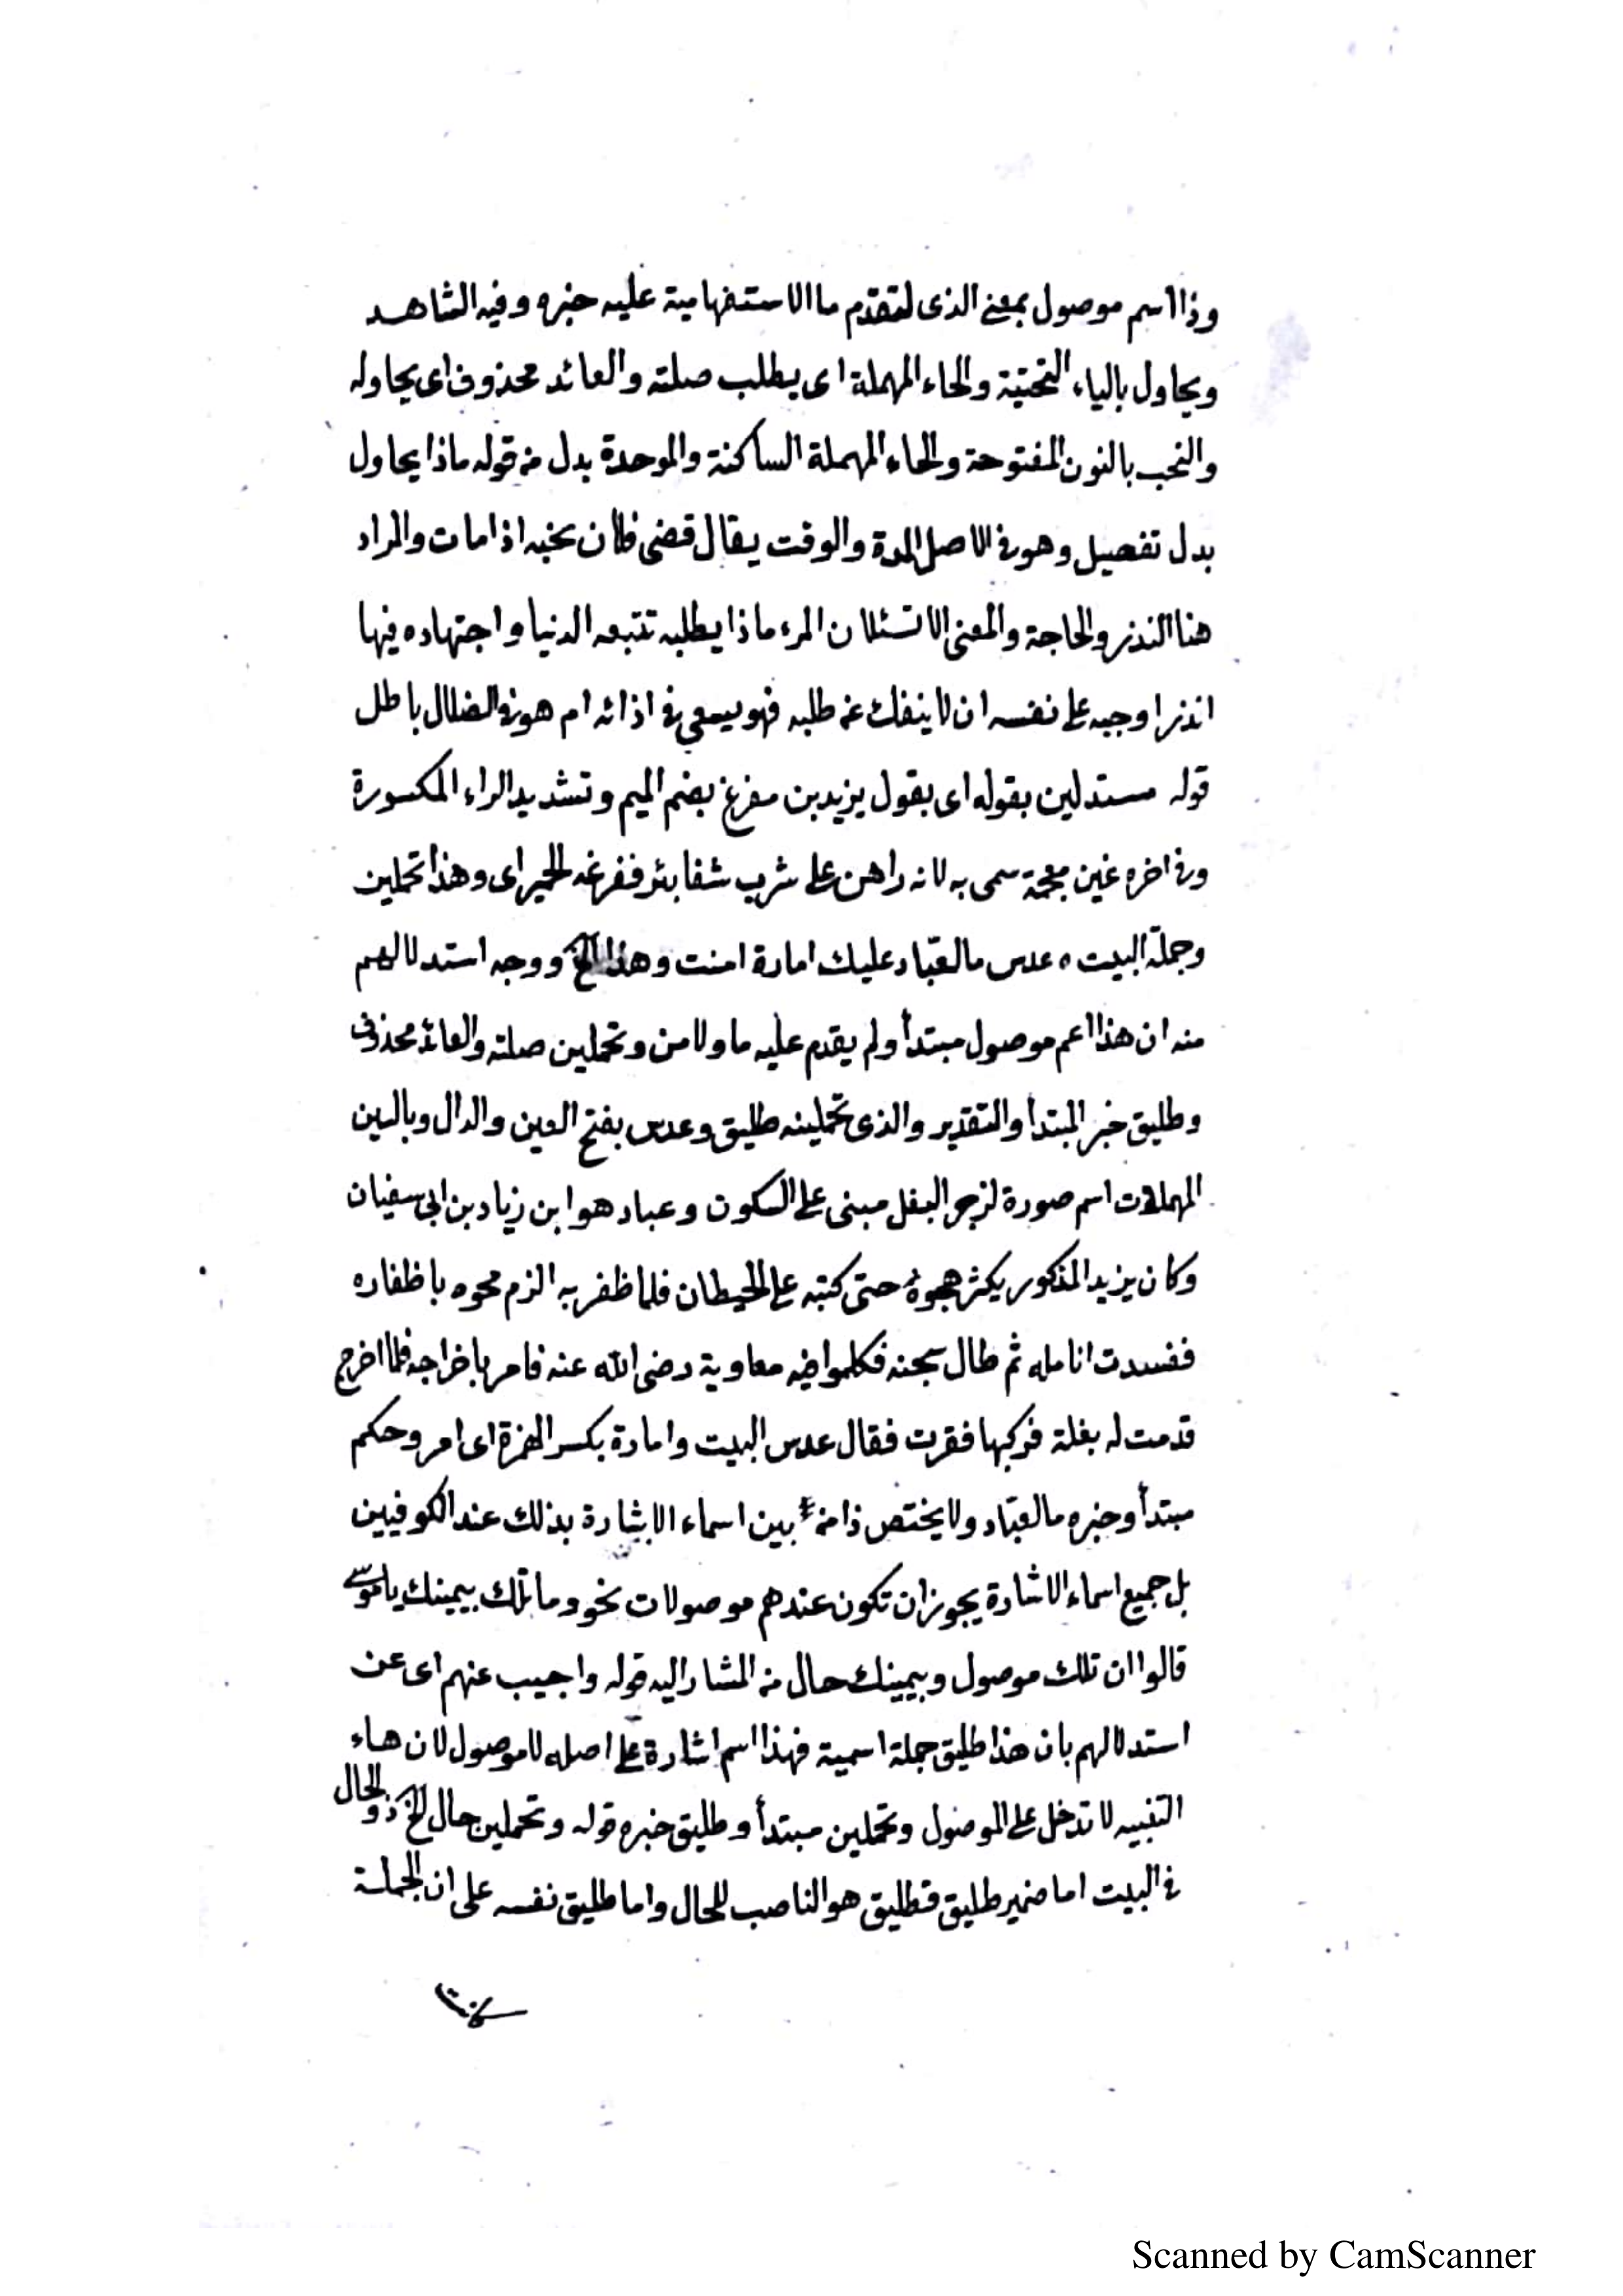 وذا اسم موصول بمعنى الذى لتقدّم ما الاستفهامية عليه خبره وفيه الشاهد
ويحاول بالياء التحتية والحاء المهملة اى يطلب صلته والعائد محذوف اى يحاوله
والنحب بالنون المفتوحة والحاء المهملة الساكنة والموحدة بدل من قوله ماذا يحاول
بدل تفصيل وهو فى الاصل المدة والوقت يقال قضى فلان نحبه اذا مات والمراد
هنا النذر والحاجة والمعنى الا تسئلان المرء ماذا يطلبه تتبعه الدنيا واجتهاده فيها
انذر اوجبه على نفسه ان لا ينفك عن طلبه فهو يسعى فى اذائه ام هو فى الضلال باطل
قوله مستدلين بقوله اى بقول يزيد بن مفرغ بضم الميم وتشديد الراء المكسورة
وفى اخره غين معجمة سمى به لانه راهن على شرب شفا بئر ففرغه الحيراى وهذا تحملين
وجملة البيت ه عدس ما لعبّاد عليك امارة امنت وهذا الخ ووجه استدلالهم
منه ان هذا اعم موصول مبتدأ ولم يقدم عليه ما ولا من وتحملين صلته والعائد محذوف
وطليق خبر المبتدأ والتقدير والذى تحملينه طليق وعدس بفتح العين والدال وبالسين
المهملات اسم صورة لزجر البغل مبنى على السكون وعباد هو ابن زياد بن ابى سفيان
وكان يزيد المذكور يكثر هجوه حتى كتبه على الحيطان فلما ظفر به الزم محوه باظفاره
ففسدت انامله ثم طال سجنه فكلموا فيه معاوية رضى الله عنه فامر باخراجه فلما اخرج
قدمت له بغلة فركبها فقرت فقال عدس البيت وامارة بكسر الهمزة اى امر وحكم
مبتدأ وخبره ما لعبّاد ولا يختص ذا من بين اسماء الاشارة بذلك عند الكوفيين
بل جميع اسماء الاشارة يجوز ان تكون عندهم موصولات نحو وما تلك بيمينك ياموسى
قالوا ان تلك موصول وبيمينك حال من المشار اليه قوله واجيب عنهم اى عن
استدلالهم بان هذا طليق جملة اسمية فهذا اسم اشارة على اصله لا موصول لان هاء
التنبيه لا تدخل على الموصول وتحملين مبتدأ وطليق خبره قوله وتحملين حال الخ ذو الحال
فى البيت اما ضمير طليق فطليق هو الناصب للحال واما طليق نفسه على ان الجملة
Scanned by CamScanner